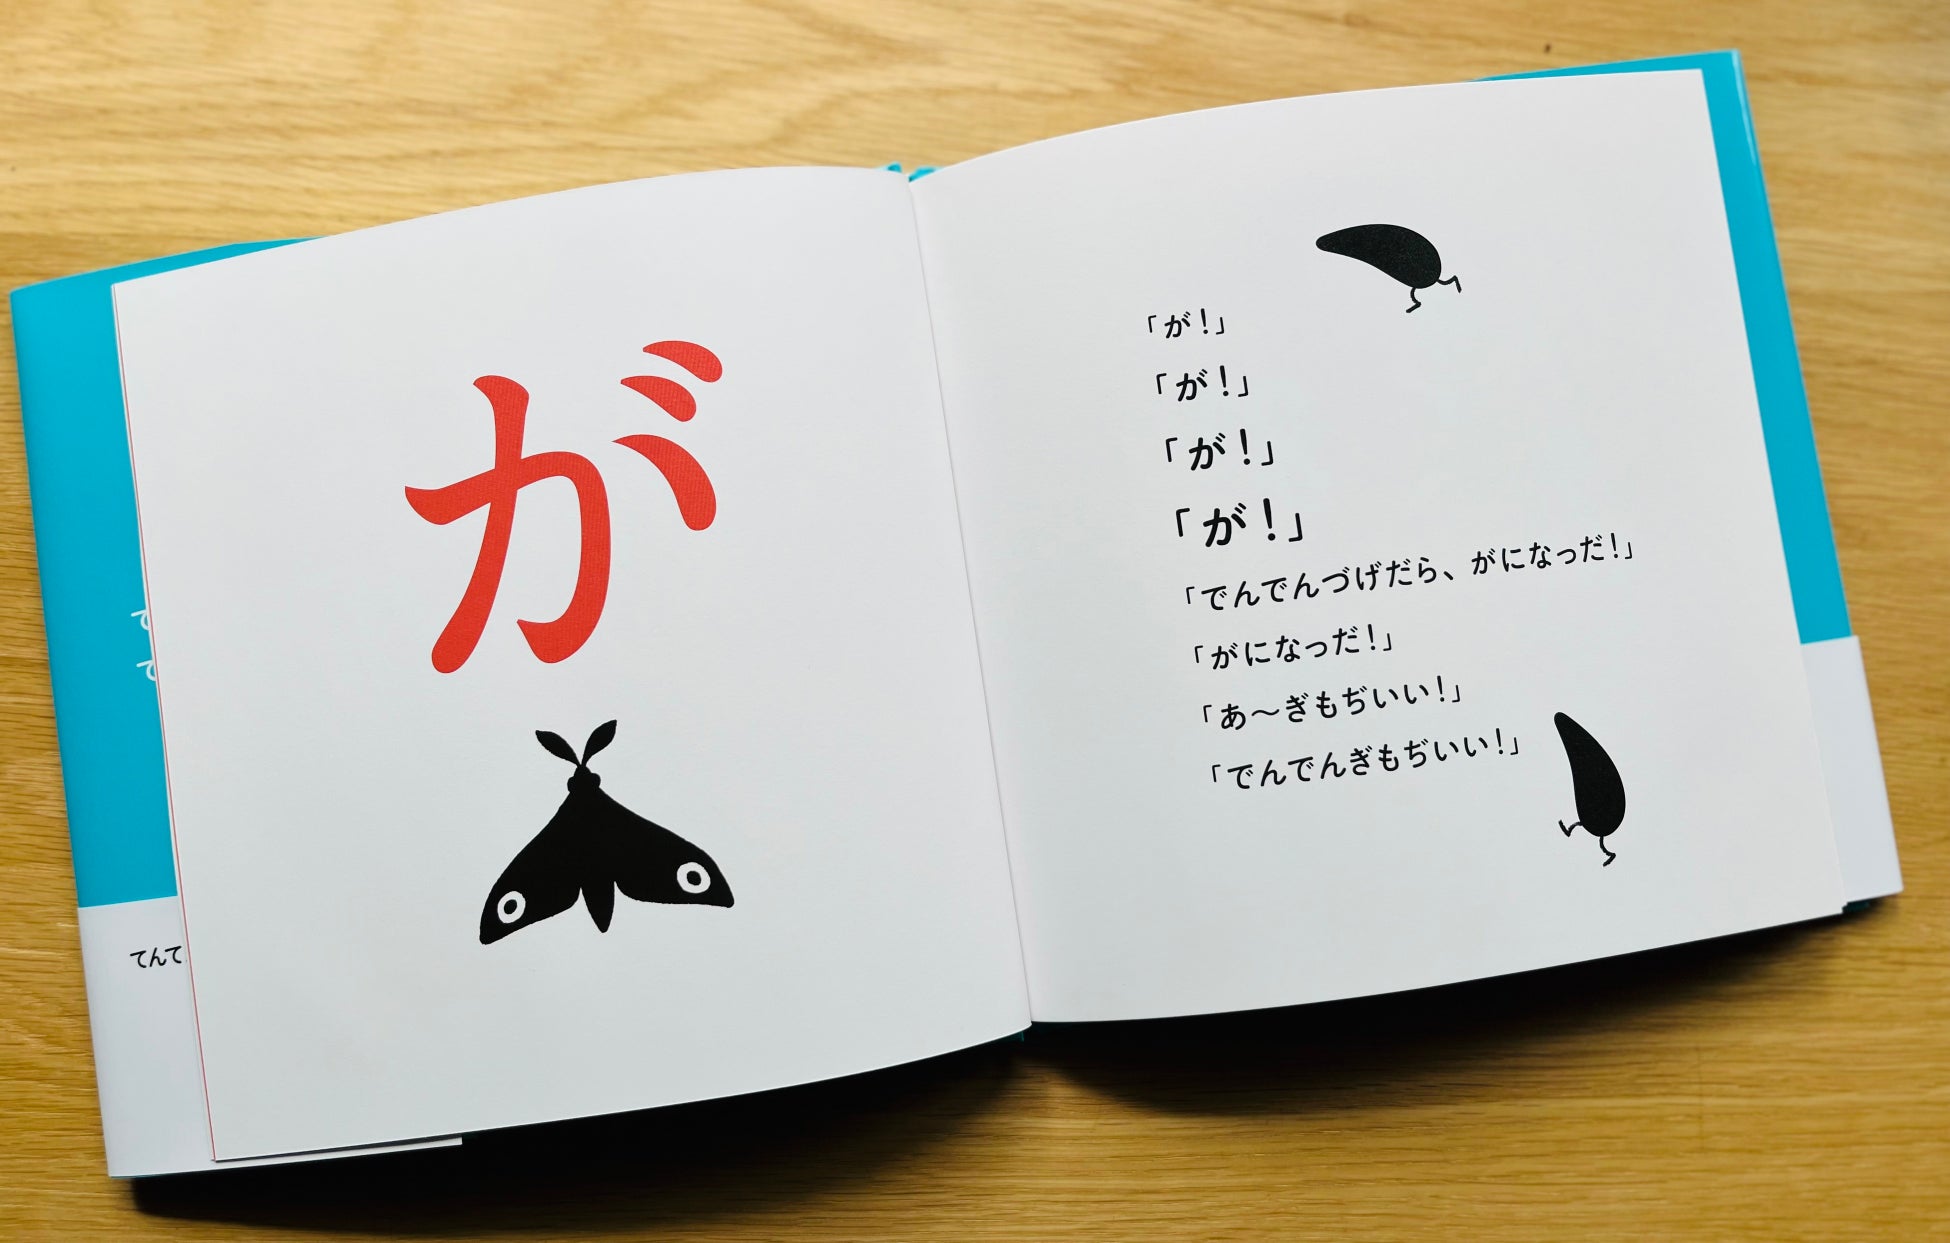 が
「が!」
「が!」
「が!」
「が!」
「でんでんづげだら、がになっだ!」
「がになっだ!」
「あ〜ぎもぢいい!」
「でんでんぎもぢいい!」
てんて